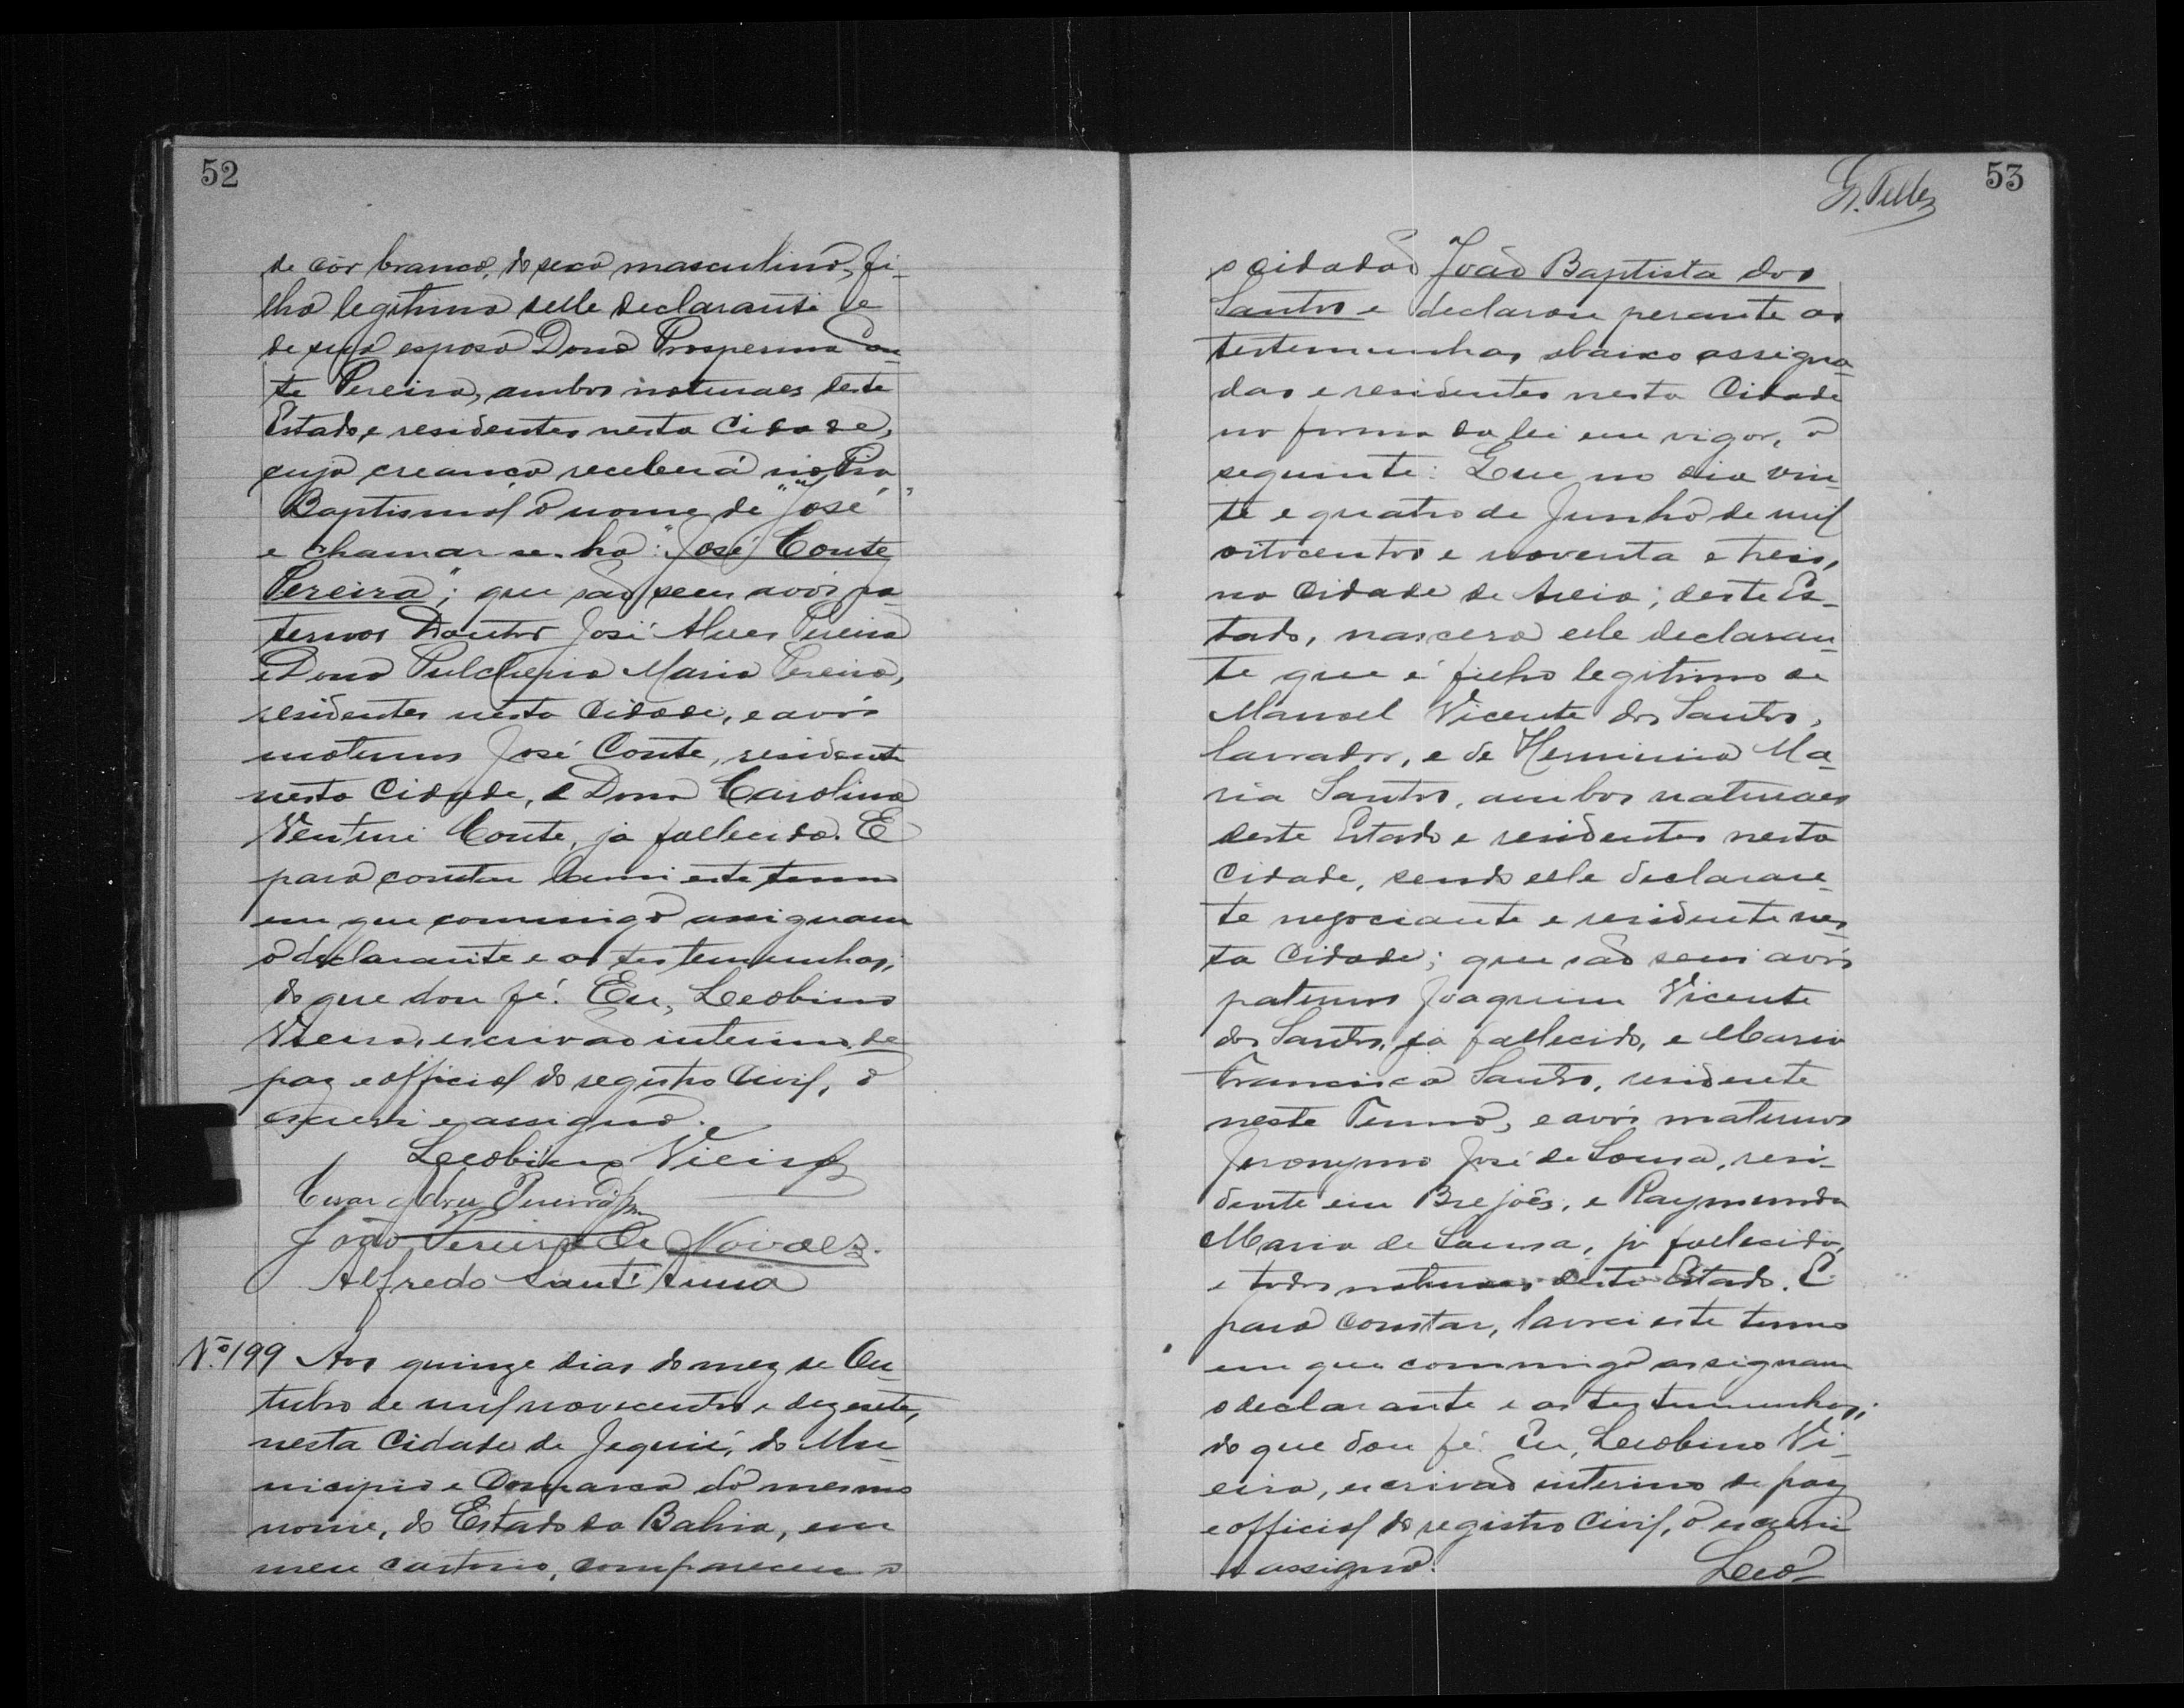 52
de côr branca, do sexo masculino, fi-
lho legitimo delle declarante e
de sua esposa Dona Prosperina Con-
te Pereira, ambos naturaes deste
Estado e residentes nesta Cidade,
cuja creança receberá na Pia
Baptismal o nome de "José"
e chamar-se-ha: "José Conte
Pereira"; que são seus avós pa-
ternos Doutor José Alves Pereira
e Dona Pulcheria Maria Pereira,
residentes nesta Cidade, e avós
maternos José Conte, residente
nesta Cidade, e Dona Carolina
Venturi Conte, já fallecida. E
para constar lavrei este termo
em que commigo assignam
o declarante e as testemunhas;
do que dou fé. Eu, Leobino
Vieira, escrivão interino de
paz e official do registro Civil, o
escrevi e assigno.
Leobino Vieira
Cesar Alves Pereira
João Pereira de Novaes.
Alfredo Sant'Anna
N.º 199 Aos quinze dias do mez de Ou-
tubro de mil novecentos e dezesete,
nesta Cidade de Jequié, do Mu-
nicipio e Comarca do mesmo
nome, do Estado da Bahia, em
meu cartorio, compareceu o
G. Telles
53
o cidadão João Baptista dos
Santos e declarou perante as
testemunhas abaixo assigna-
das e residentes nesta Cidade
na forma da lei em vigor, o
seguinte: Que no dia vin-
te e quatro de Junho de mil
oitocentos e noventa e tres,
na Cidade de Areia, deste Es-
tado, nascera elle declaran-
te que é filho legitimo de
Manoel Vicente dos Santos,
lavrador, e de Herminia Ma-
ria Santos, ambos naturaes
deste Estado e residentes nesta
Cidade, sendo elle declaran-
te negociante e residente nes-
ta Cidade; que são seus avós
paternos Joaquim Vicente
dos Santos, já fallecido, e Maria
Francisca Santos, residente
neste Termo, e avós maternos
Jeronymo José de Sousa, resi-
dente em Brejões, e Raymunda
Maria de Sousa, já fallecida,
e todos naturaes deste Estado. E
para constar, lavrei este termo
em que commigo assignam
o declarante e as testemunhas;
do que dou fé. Eu, Leobino Vi-
eira, escrivão interino de paz
e official do registro Civil, o escrevi
e assigno. Leo-